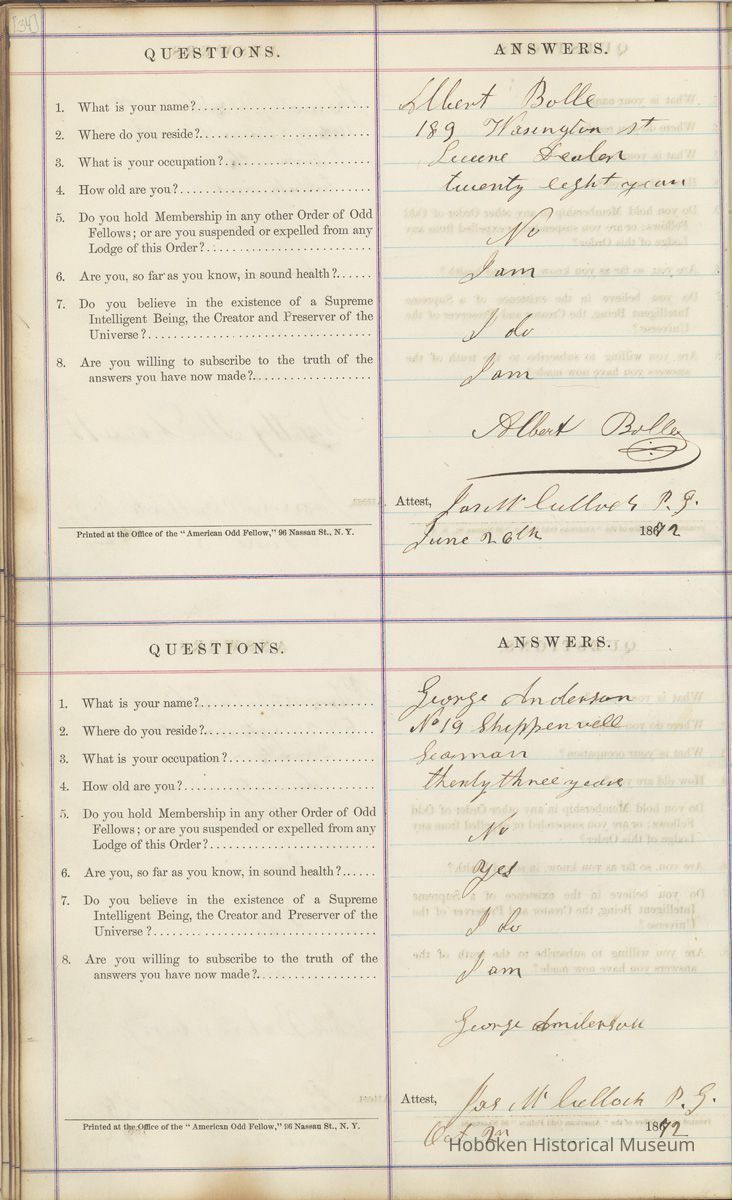 [34]
QUESTIONS.
ANSWERS.
1. What is your name?
Albert Bolle
2. Where do you reside?
189 Wasington st
3. What is your occupation?
Dealer
4. How old are you?
twenty eight years
5. Do you hold Membership in any other Order of Odd
Fellows; or are you suspended or expelled from any
Lodge of this Order?
No
6. Are you, so far as you know, in sound health?
I am
7. Do you believe in the existence of a Supreme
Intelligent Being, the Creator and Preserver of the
Universe?
I do
8. Are you willing to subscribe to the truth of the
answers you have now made?
I am
Albert Bolle
Attest, Jas McCulloch P. G.
June 26th 1872
Printed at the Office of the "American Odd Fellow," 96 Nassau St., N. Y.
QUESTIONS.
ANSWERS.
1. What is your name?
George Anderson
2. Where do you reside?
No 19 Shippenvill
3. What is your occupation?
Seaman
4. How old are you?
thenty three years
5. Do you hold Membership in any other Order of Odd
Fellows; or are you suspended or expelled from any
Lodge of this Order?
No
6. Are you, so far as you know, in sound health?
Yes
7. Do you believe in the existence of a Supreme
Intelligent Being, the Creator and Preserver of the
Universe?
I do
8. Are you willing to subscribe to the truth of the
answers you have now made?
I am
George Anderson
Attest, Jas McCulloch P. G.
Oct 1872
Printed at the Office of the "American Odd Fellow," 96 Nassau St., N. Y.
Hoboken Historical Museum